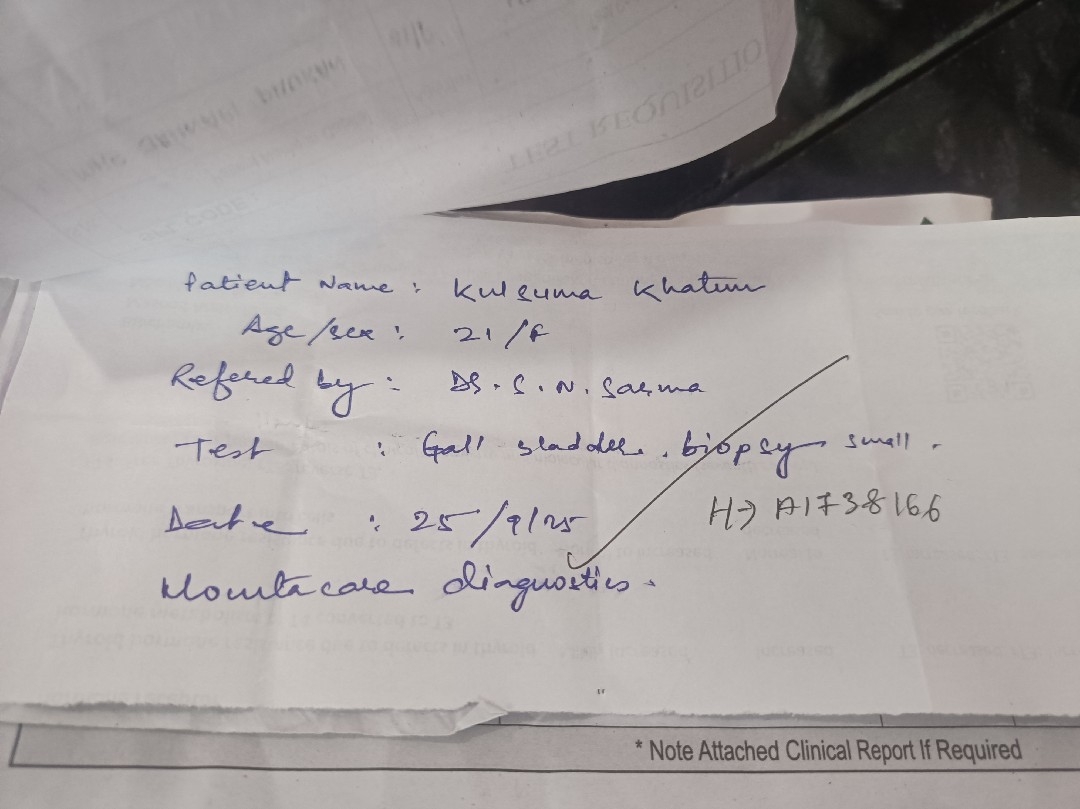 TEST REQUISITIO
Patient Name : Kulsuma Khatun
Age/sex : 21/F
Refered by : DS. S. N. Sarma
Test : Gall bladder. biopsy small.
H→ A1738166
Date : 25/9/25
diagnostics.
* Note Attached Clinical Report If Required